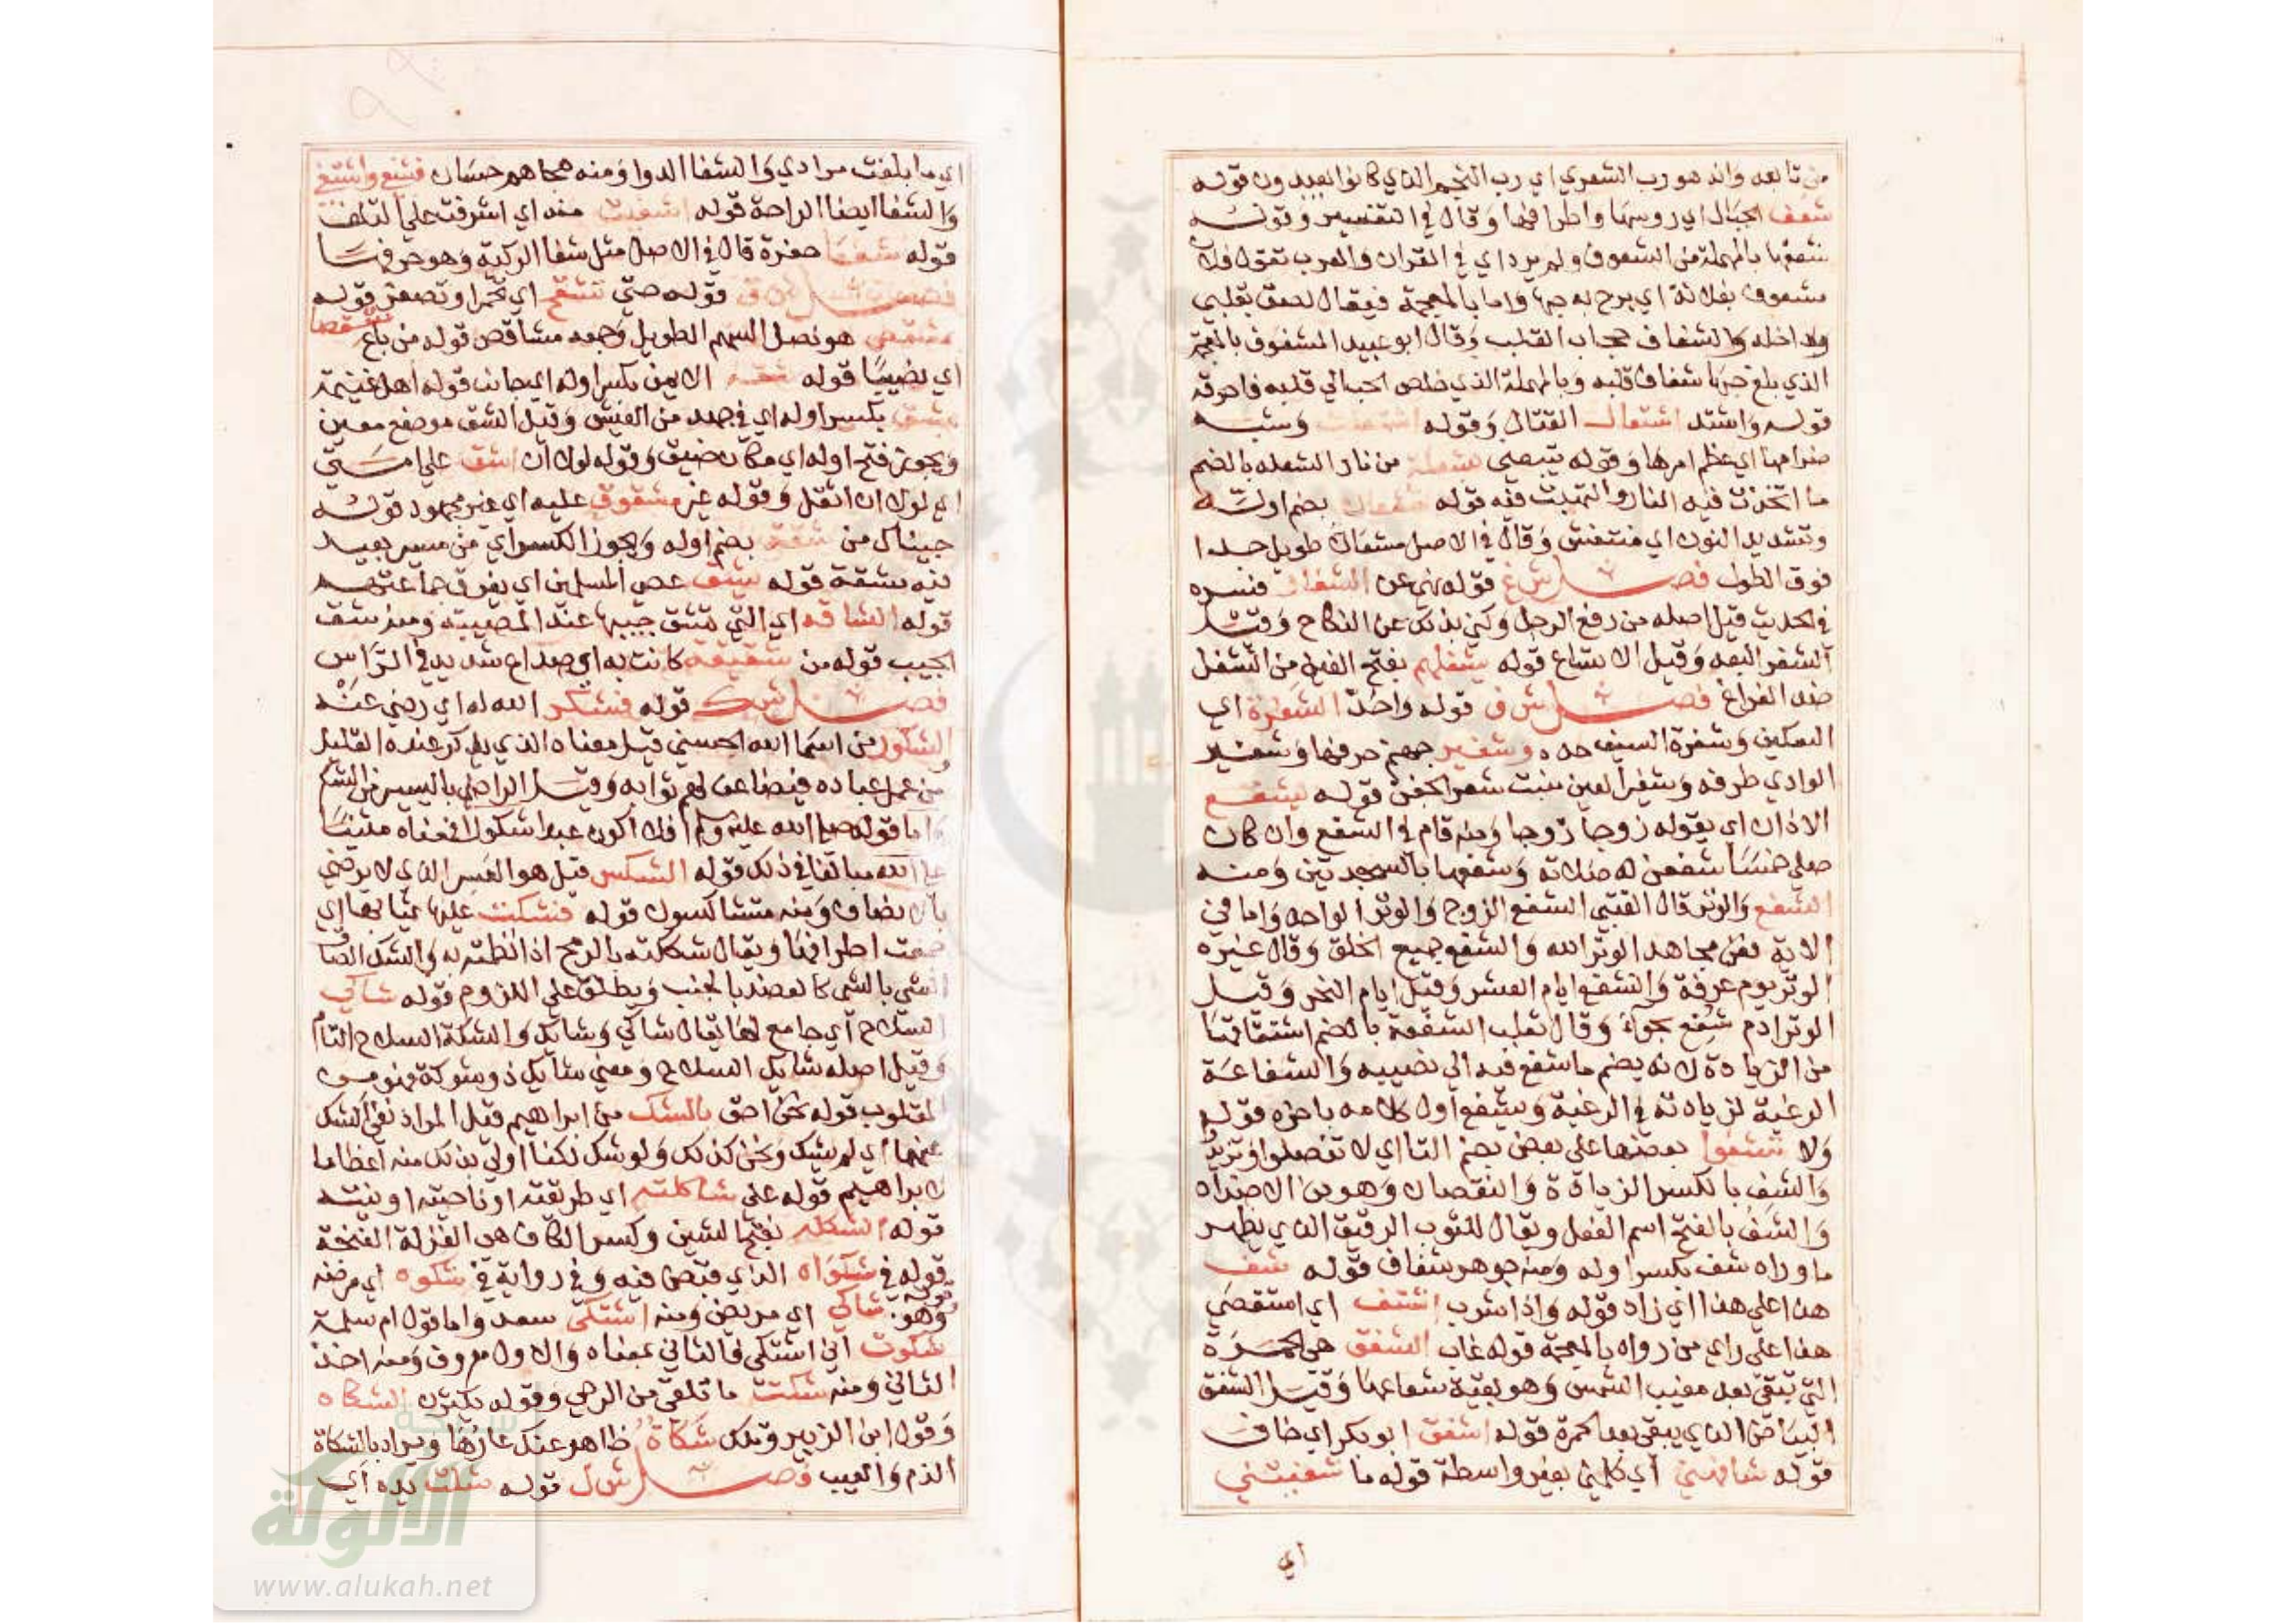 من تابعه وانه هو رب الشعري اي رب النجم الذي كانوا يعبدون قوله
شعف الجبال اي روسها واطرافها وقال في التفسير وقوله
شعفها بالمهملة من الشعوف ولم يرد اي في القران والعرب تقول فلان
مشعوف بفلانة اي برح به حبها واما بالمعجمة فيقال لصق بقلبي
وداخله والشغاف حجاب القلب وقال ابو عبيد المشغوف بالمعجمة
الذي بلغ حبها شغاف قلبه وبالمهملة الذي خلص الحب الي قلبه فاحرقه
قوله واشتد اشتعال القتال وقوله اشتعلت وشبه
ضرامها اي عظم امرها وقوله يتبعني بشعلة من نار الشعله بالضم
ما اتخذت فيه النار والتهبت فيه قوله مشعان بضم اوله
وتشديد النون اي منتفش وقال في الاصل مشعان طويل جدا
فوق الطول فصل ش غ قوله نهي عن الشغار فسره
في الحديث قيل اصله من رفع الرجل وكني بذلك عن النكاح وقيل
الشغر البعد وقيل الاتساع قوله يشغلهم بفتح الغين من الشغل
ضد الفراغ فصل ش ف قوله واحد الشفرة اي
السكين وشفرة السيف حده وشفير جهنم حرفها وشفير
الوادي طرفه وشفير العين منبت شعر الجفن قوله ليشفع
الاذان اي يقوله زوجا زوجا ومنه قام في الشفع وان كان
صلي خمسا شفعن له صلاته وشفعها بالسجدتين ومنه
الشفع والوتر قال القتبي الشفع الزوج والوتر الواحد واما في
الاية فعن مجاهد الوتر الله والشفع جميع الخلق وقال غيره
الوتر يوم عرفة والشفع ايام العشر وقيل ايام النحر وقيل
الوتر ادم شفع بحواء وقال ثعلب الشفعة بالضم اشتقاقها
من الزيادة لانه يضم ما شفع فيه الي نصيبه والشفاعة
الرغبة لزيادته في الرغبة ويشفع اول كلامه باخره قوله
ولا تشفوا بعضها علي بعض بضم التا اي لا تفضلوا وتزيدوا
والشف بالكسر الزيادة والنقصان وهو من الاضداد
والشف بالفتح اسم الفعل ويقال للثوب الرقيق الذي يظهر
ما وراه شف بكسر اوله ومنه جوهر شفاف قوله شف
هذا علي هذا اي زاد قوله واذا شرب اشتف اي استقصي
هذا علي راي من رواه بالمعجمة قوله غاب الشفق هي الحمرة
التي تبقي بعد مغيب الشمس وهو بقية شعاعها وقيل الشفق
البياض الذي يبقي بعد الحمرة قوله اشفق ابو بكر اي خاف
قوله شافهني اي كلمني بغير واسطة قوله ما شفيتني
اي
اي ما بلغت مرادي والشفا الدوا ومنه هجاهم حسان فشفي واشتفي
والشفا ايضا الراحة قوله اشفيت منه اي اشرفت علي التلف
قوله شفا حفرة قال في الاصل مثل شفا الركية وهو حرفها
فصل ش ق قوله حتي تشقح اي تحمر او تصفر قوله
مشقص هو نصل السهم الطويل وجمعه مشاقص قوله من باع شقصا
اي نصيبا قوله شقه الايمن بكسر اوله اي جانبه قوله اهل غنيمة
بشق بكسر اوله اي في جهد من العيش وقيل الشق موضع معين
ويجوز فتح اوله اي مكان ضيق وقوله لولا ان اشق علي امتي
اي لولا ان اثقل وقوله غير مشقوق عليه اي غير مجهود قوله
جيناك من شقة بضم اوله ويجوز الكسر اي من مسير بعيد
فيه مشقة قوله يشق عصي المسلمين اي يفرق جماعتهم
قوله الشاقه اي التي تشق جيبها عند المصيبة ومنه شق
الجيب قوله من شقيقة كانت به اي صداع شديد في الراس
فصل ش ك قوله فشكر الله له اي رضي عنه
الشكور من اسما الله الحسني قيل معناه الذي يذكر عنده القليل
من عمل عباده فيضاعف لهم ثوابه وقيل الراضي باليسير من الشكر
واما قوله صلي الله عليه وسلم افلا اكون عبدا شكورا فمعناه مثنيا
علي الله مبالغا في ذلك قوله الشكس قيل هو العسر الذي لا يرضي
بالانصاف ومنه متشاكسون قوله فشكت عليها ثيابها اي
جمعت اطرافها ويقال شككته بالرمح اذا نظمته به والشك الصاق
الشي بالشي كالعضد بالجنب ويطلق علي اللزوم قوله شاكي
السلاح اي جامع لها يقال شاكي وشايك والشكة السلاح التام
وقيل اصله شايك السلاح ومعني شايك ذو شوكة فهو من
المقلوب قوله نحن احق بالشك من ابراهيم قيل المراد نفي الشك
عنهما اي لم يشك ونحن كذلك ولو شك لكنا اولي بذلك منه اعظاما
لابراهيم قوله علي شاكلته اي طريقته او ناحيته او نيته
قوله الشكله بفتح الشين وكسر الكاف هي الغزلة الغنجة
قوله في شكواه الذي قبض فيه وفي رواية في شكوه اي مرضه
قوله وهو شاكي اي مريض ومنه اشتكي سعد واما قول ام سلمة
شكوت اني اشتكي فالثاني بمعناه والاول معروف ومنه اخذ
الثاني ومنه شكت ما تلقي من الرحي وقوله يكثرن الشكاه
وقول ابن الزبير وتلك شكاة ظاهر عنك عارها ويراد بالشكاة
الذم والعيب فصل ش ل قوله شلت يده اي
شبكة
الألوكة
www.alukah.net